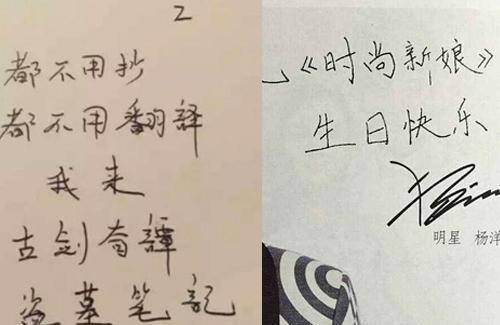 2
都不用抄
都不用翻譯
我来
古剑奇譚
盗墓笔記
《时尚新娘》
生日快乐
明星 杨洋